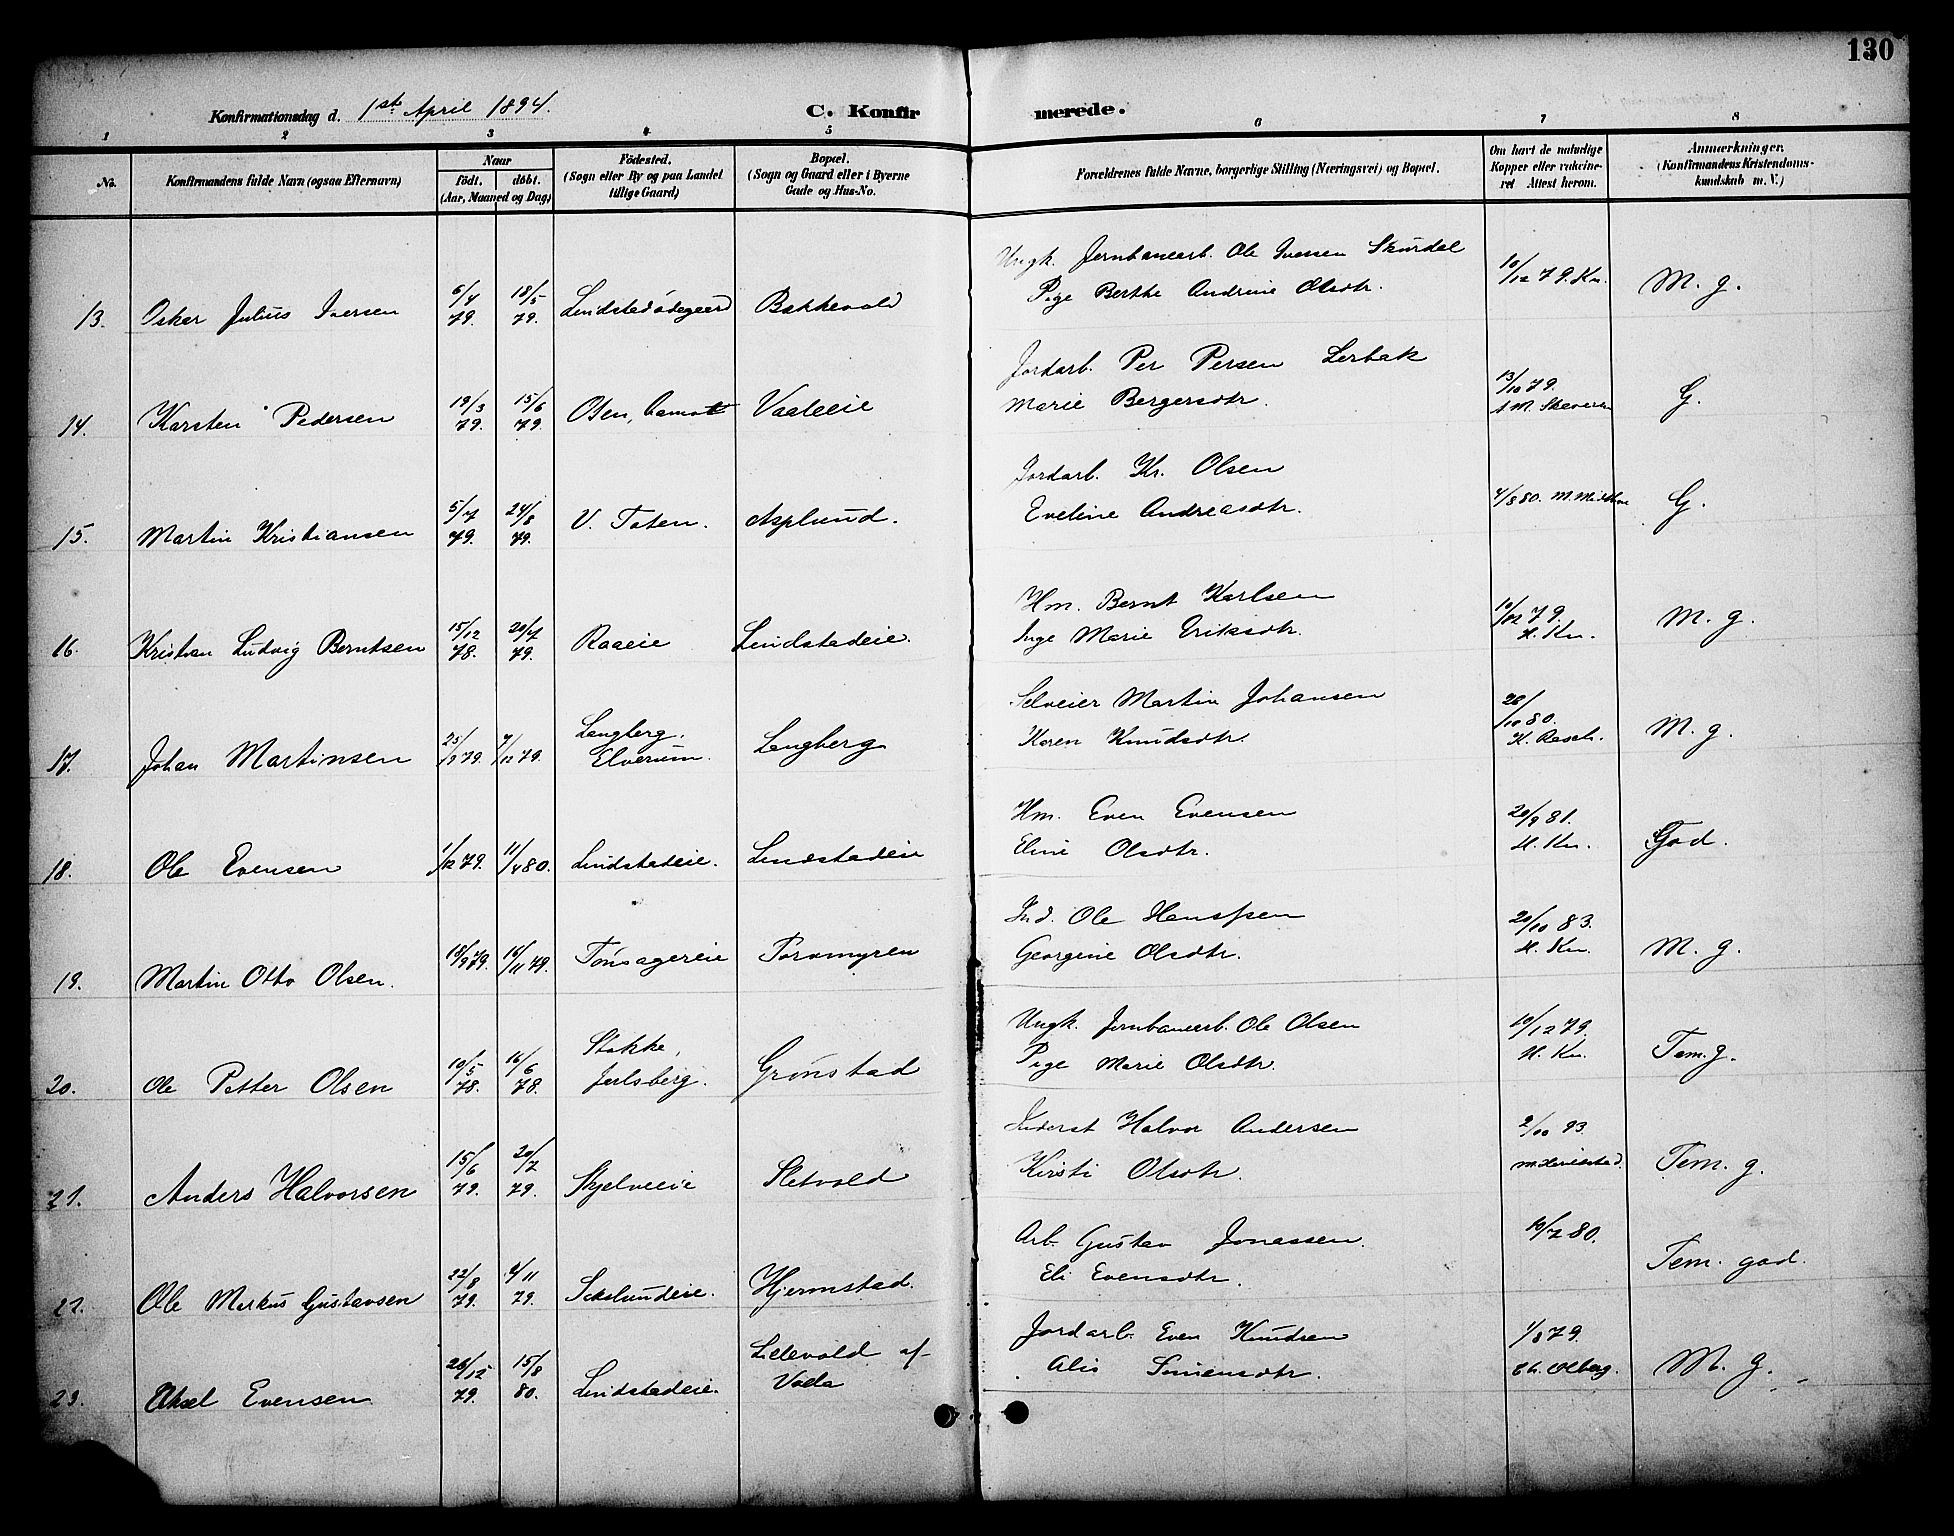 130
Konfirmationsdag d. 1ste April 1894.
C. Konfirmerede.
1 2 3 4 5 6 7 8
No.
Konfirmandens fulde Navn (ogsaa Efternavn)
Naar
født. døbt.
(Aar, Maaned og Dag)
Fødested.
(Sogn eller By og paa Landet
tillige Gaard)
Bopæl.
(Sogn og Gaard eller i Byerne
Gade og Hus-No.
Forældrenes fulde Navne, borgerlige Stilling (Næringsvei) og Bopæl.
Om havt de naturlige
Kopper eller vakcine-
ret Attest herom.
Anmærkninger.
(Konfirmandens Kristendoms-
kundskab m. V.)
13. Oskar Julius Iversen 6/4 79. 18/5 79. Lindstadødegaard Bakkevold
Ungk. Jernbanearb. Ole Iversen Skurdal
Pige Berthe Andrine Olsdtr. 10/12 79. Kn. M. g.
14. Karsten Pedersen 19/3 79. 15/6 79. Osen, Aamot Vaaleeie
Jordarb. Per Persen Lerbak
Marie Bergersdtr. 13/10 79. G.
15. Martin Kristiansen 5/7 79. 24/8 79. V. Toten. Asplund.
Jordarb. Kr. Olsen
Eveline Andreasdtr. 4/8 80. G.
16. Kristian Ludvig Berntsen 15/12 78. 20/4 79. Raaeie Lindstadeie.
Hm. Bernt Karlsen
Inge Marie Eriksdtr. 10/12 79. H. Kn. M. g.
17. Johan Martinsen 79. 7/12 79. Langberg, Elverum. Langberg
Selveier Martin Johansen
Karen Knudsdtr. 28/10 80. K. Rasch. M. g.
18. Ole Evensen 1/12 79. 11/4 80. Lindstadeie. Lindstadeie
Hm. Even Evensen
Eline Olsdtr. 20/9 81. H. Kn. God.
19. Martin Otto Olsen. 18/9 79. 16/11 79. Tønsagereie Torvmyren
Ind. Ole Hansen
Georgine Olsdtr. 20/10 83. H. Kn. M. g.
20. Ole Petter Olsen 10/5 78. 16/6 78. Stokke, Jarlsberg. Grønstad
Ungk. Jernbanearb. Ole Olsen
Pige Marie Olsdtr. 10/12 79. H. Kn. Tem. g.
21. Anders Halvorsen 15/6 79. 20/7 79. Skjelveeie Sletvold
Inderst Halvor Andersen
Kirsti Olsdtr. 2/10 93. Tem. g.
22. Ole Markus Gustavsen 22/8 79. 4/11 79. Hjermstad.
Arb. Gustav Jonassen.
Eli Evensdtr. 10/7 80. Tem. god.
23. Aksel Evensen 26/12 79. 15/8 80. Lindstadeie. Lillevold af
Vaala
Jordarb. Even Knudsen
Alis Simensdtr. 1/8 79. Ch. Olberg. M. g.